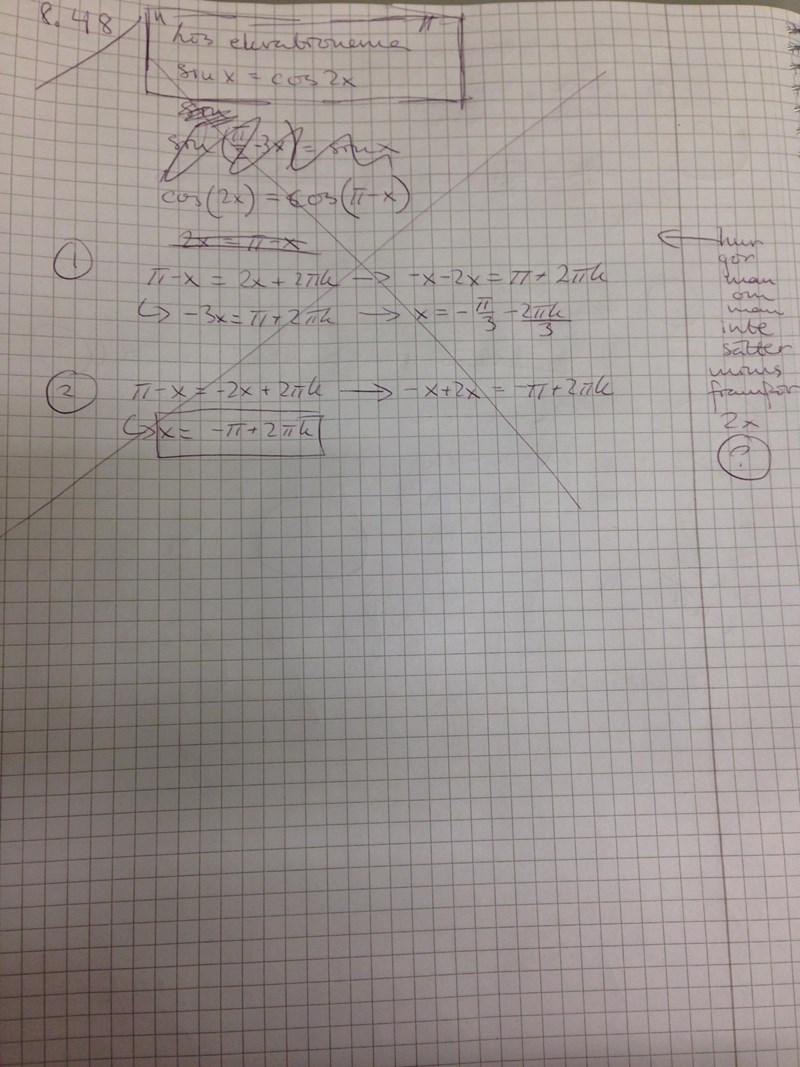 8.48
"Lös ekvationerna"
sin x = cos 2x
sin(π/2 - 3x) = sin x
cos(2x) = cos(π-x)
2x = π-x
① π-x = 2x + 2πk → -x-2x = π + 2πk
↳ -3x = π + 2πk → x = -π/3 - 2πk/3
② π-x = -2x + 2πk → -x+2x = -π + 2πk
↳ x = -π + 2πk
← hur
gör
man
om
man
inte
sätter
minus
framför
2x
?